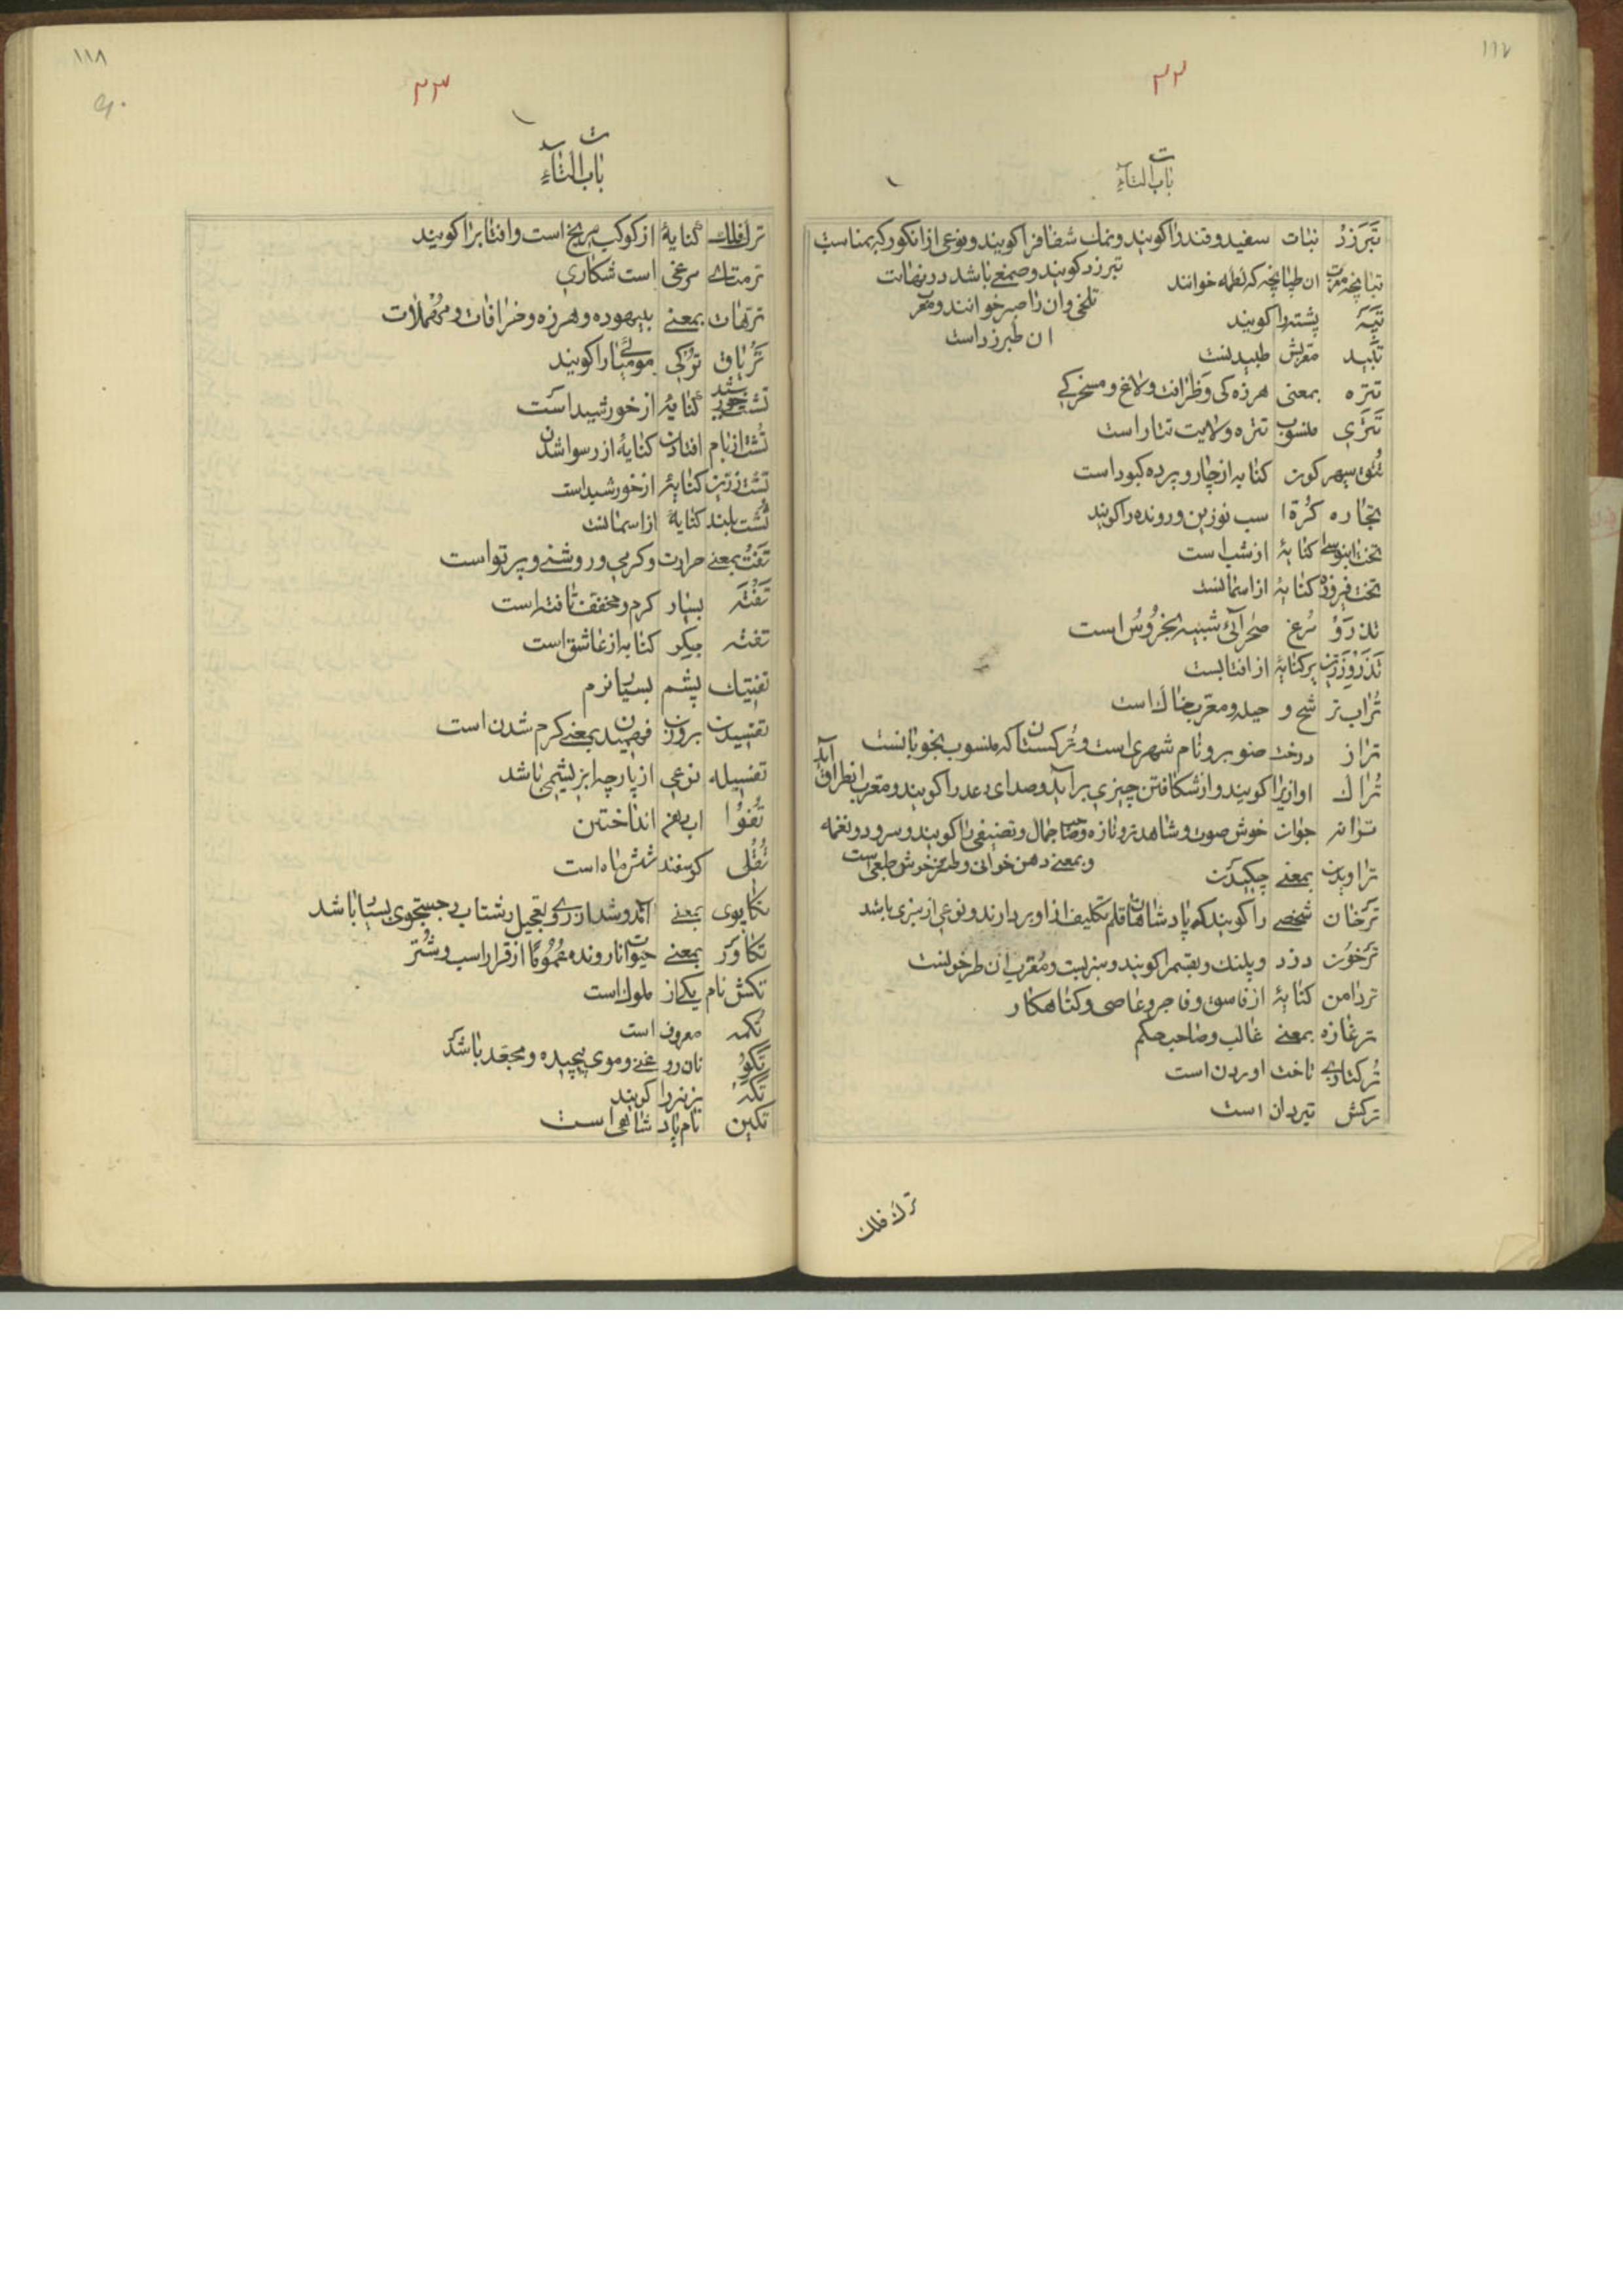 ١١٧
٢٢
ت
باب التاء
تَبَرزَدْ نبات سفید و قند را کویند و نمک شفافرا کویند و نوعی از انکور که بمناسبت
تبرزد کویند و صمغی باشد در نهایت
تلخی و ان را صبر خوانند و معرب
ان طبرزد است
تبانچه معرب ان طپانچه که لطمه خوانند
تپه پشته را کویند
تبید معربش طبیدنست
تتره بمعنی هرزه کی و ظرافت و لاغ و مسخرکی
تَتَری منسوب تتره و ولایت تتار است
تُتُق سپهر کون کنایه از چار و پرده کبود است
تجاره کُرّهٔ اسب نوزین و رونده را کویند
تخت ابنوسی کنایهٔ از شب است
تخت فیروزه کنایهٔ از اسمانست
تذرَوْ مُرغ صحرائی شبیه بخُروُس است
تذَروْ زرّین پر کنایهٔ از افتابست
تُراب ترشح و حیله و معرب خاک است
تراز درخت صنوبر و نام شهری است و تُرکستان که منسوب بخوبانست
تُراک اوازیرا کویند و از شکافتن چیزی بر آید و صدای رعد را کویند و معرب ان طراق آید
ترانه جوان خوش صورت و شاهد تر و تازه و صاحب جمال و تصنیفی را کویند و سرود و نغمه
و بمعنی دهن خوانی و طنز و خوش طبعی است
تراویدن بمعنی چکیدن
تَرخان شخصی را کویند که پادشاهان قلم تکلیف از او بردارند و نوعی از سبزی باشد
ترخون دزد و پلنک و بقم را کویند و سبزیست و مُعرب ان طرخونست
تردامن کنایهٔ از فاسق و فاجر و عاصی و کناهکار
ترغازه بمعنی غالب و صاحب حکم
تُرکتازی تاخت اوردن است
ترکش تیردان است
ترک فلک
١١٨
٢٣
ت
باب التاء
ترک فلک کنایهٔ از کوکب مریخ است و افتابرا کویند
ترمتای مرغی است شکاری
ترّهات بمعنی بیهوده و هرزه و خرافات و مُهملات
تَریاق ترکی مومیائی را کویند
تشت خورشید کنایهٔ از خورشید است
تُشت از بام افتادن کنایهٔ از رسوا شدن
تشت زرّین کنایهٔ از خورشید است
تُشت بلند کنایهٔ از اسمانست
تَفتُ بمعنی حرارت و کرمی و روشنی و پرتو است
تَفْتَه بسیار کرم و مخفف تافته است
تفته جیکر کنایه از عاشق است
تفتیک پشم بسیار نرم
تفسیدن بروزن فهمیدن بمعنی کرم شدن است
تفسیله نوعی از پارچه ابریشمی باشد
تُفوُا اب دهن انداختن
تُقُلی کوسفند شش ماه است
تکاپوی بمعنی آمد و شد از روی تعجیل و شتاب و جستجوی بسیار باشد
تکاوَر بمعنی حیوانات رونده عمُوُمًا از قرار اسب و شُتر
تکش نام یکی از ملوک است
تُکمه معروف است
تُکوُ نان روغنی و موی پیچیده و مجعّد باشد
تکه بز نر را کویند
تکین نام پادشاهی است